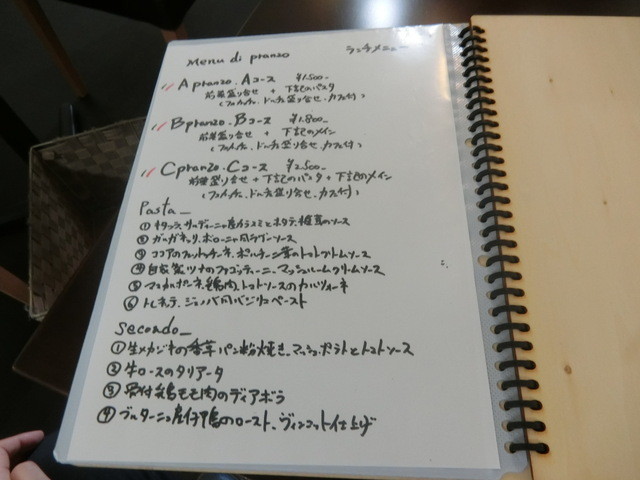 Menu di pranzo ランチメニュー
A pranzo. Aコース ¥1.500-
前菜盛り合せ + 下記のパスタ
(フォカッチャ、ドルチェ盛り合せ、カフェ付)
B pranzo. Bコース ¥1.800-
前菜盛り合せ + 下記のメイン
(フォカッチャ、ドルチェ盛り合せ、カフェ付)
C pranzo. Cコース ¥2.500-
前菜盛り合せ + 下記のパスタ + 下記のメイン
(フォカッチャ、ドルチェ盛り合せ、カフェ付)
Pasta_
① キタッラ、サルディーニャ産カラスミとホタテ、椎茸のソース
② ガルガネッリ、ボローニャ風ラグソース
③ ココアのフェットチーネ、ポルチーニ茸のトマトクリームソース
④ 自家製ツナのファゴッティーニ、マッシュルームクリームソース
⑤ 鶏肉、トマトソースの
⑥ トレネッテ、ジェノバ風バジリコペースト
Secondo_
① 生メカジキの香草パン粉焼き、マッシュポテトとトマトソース
② 牛ロースのタリアータ
③ 骨付鶏モモ肉のディアボラ
④ ブルターニュ産仔鴨のロースト、ヴィンコット仕上げ